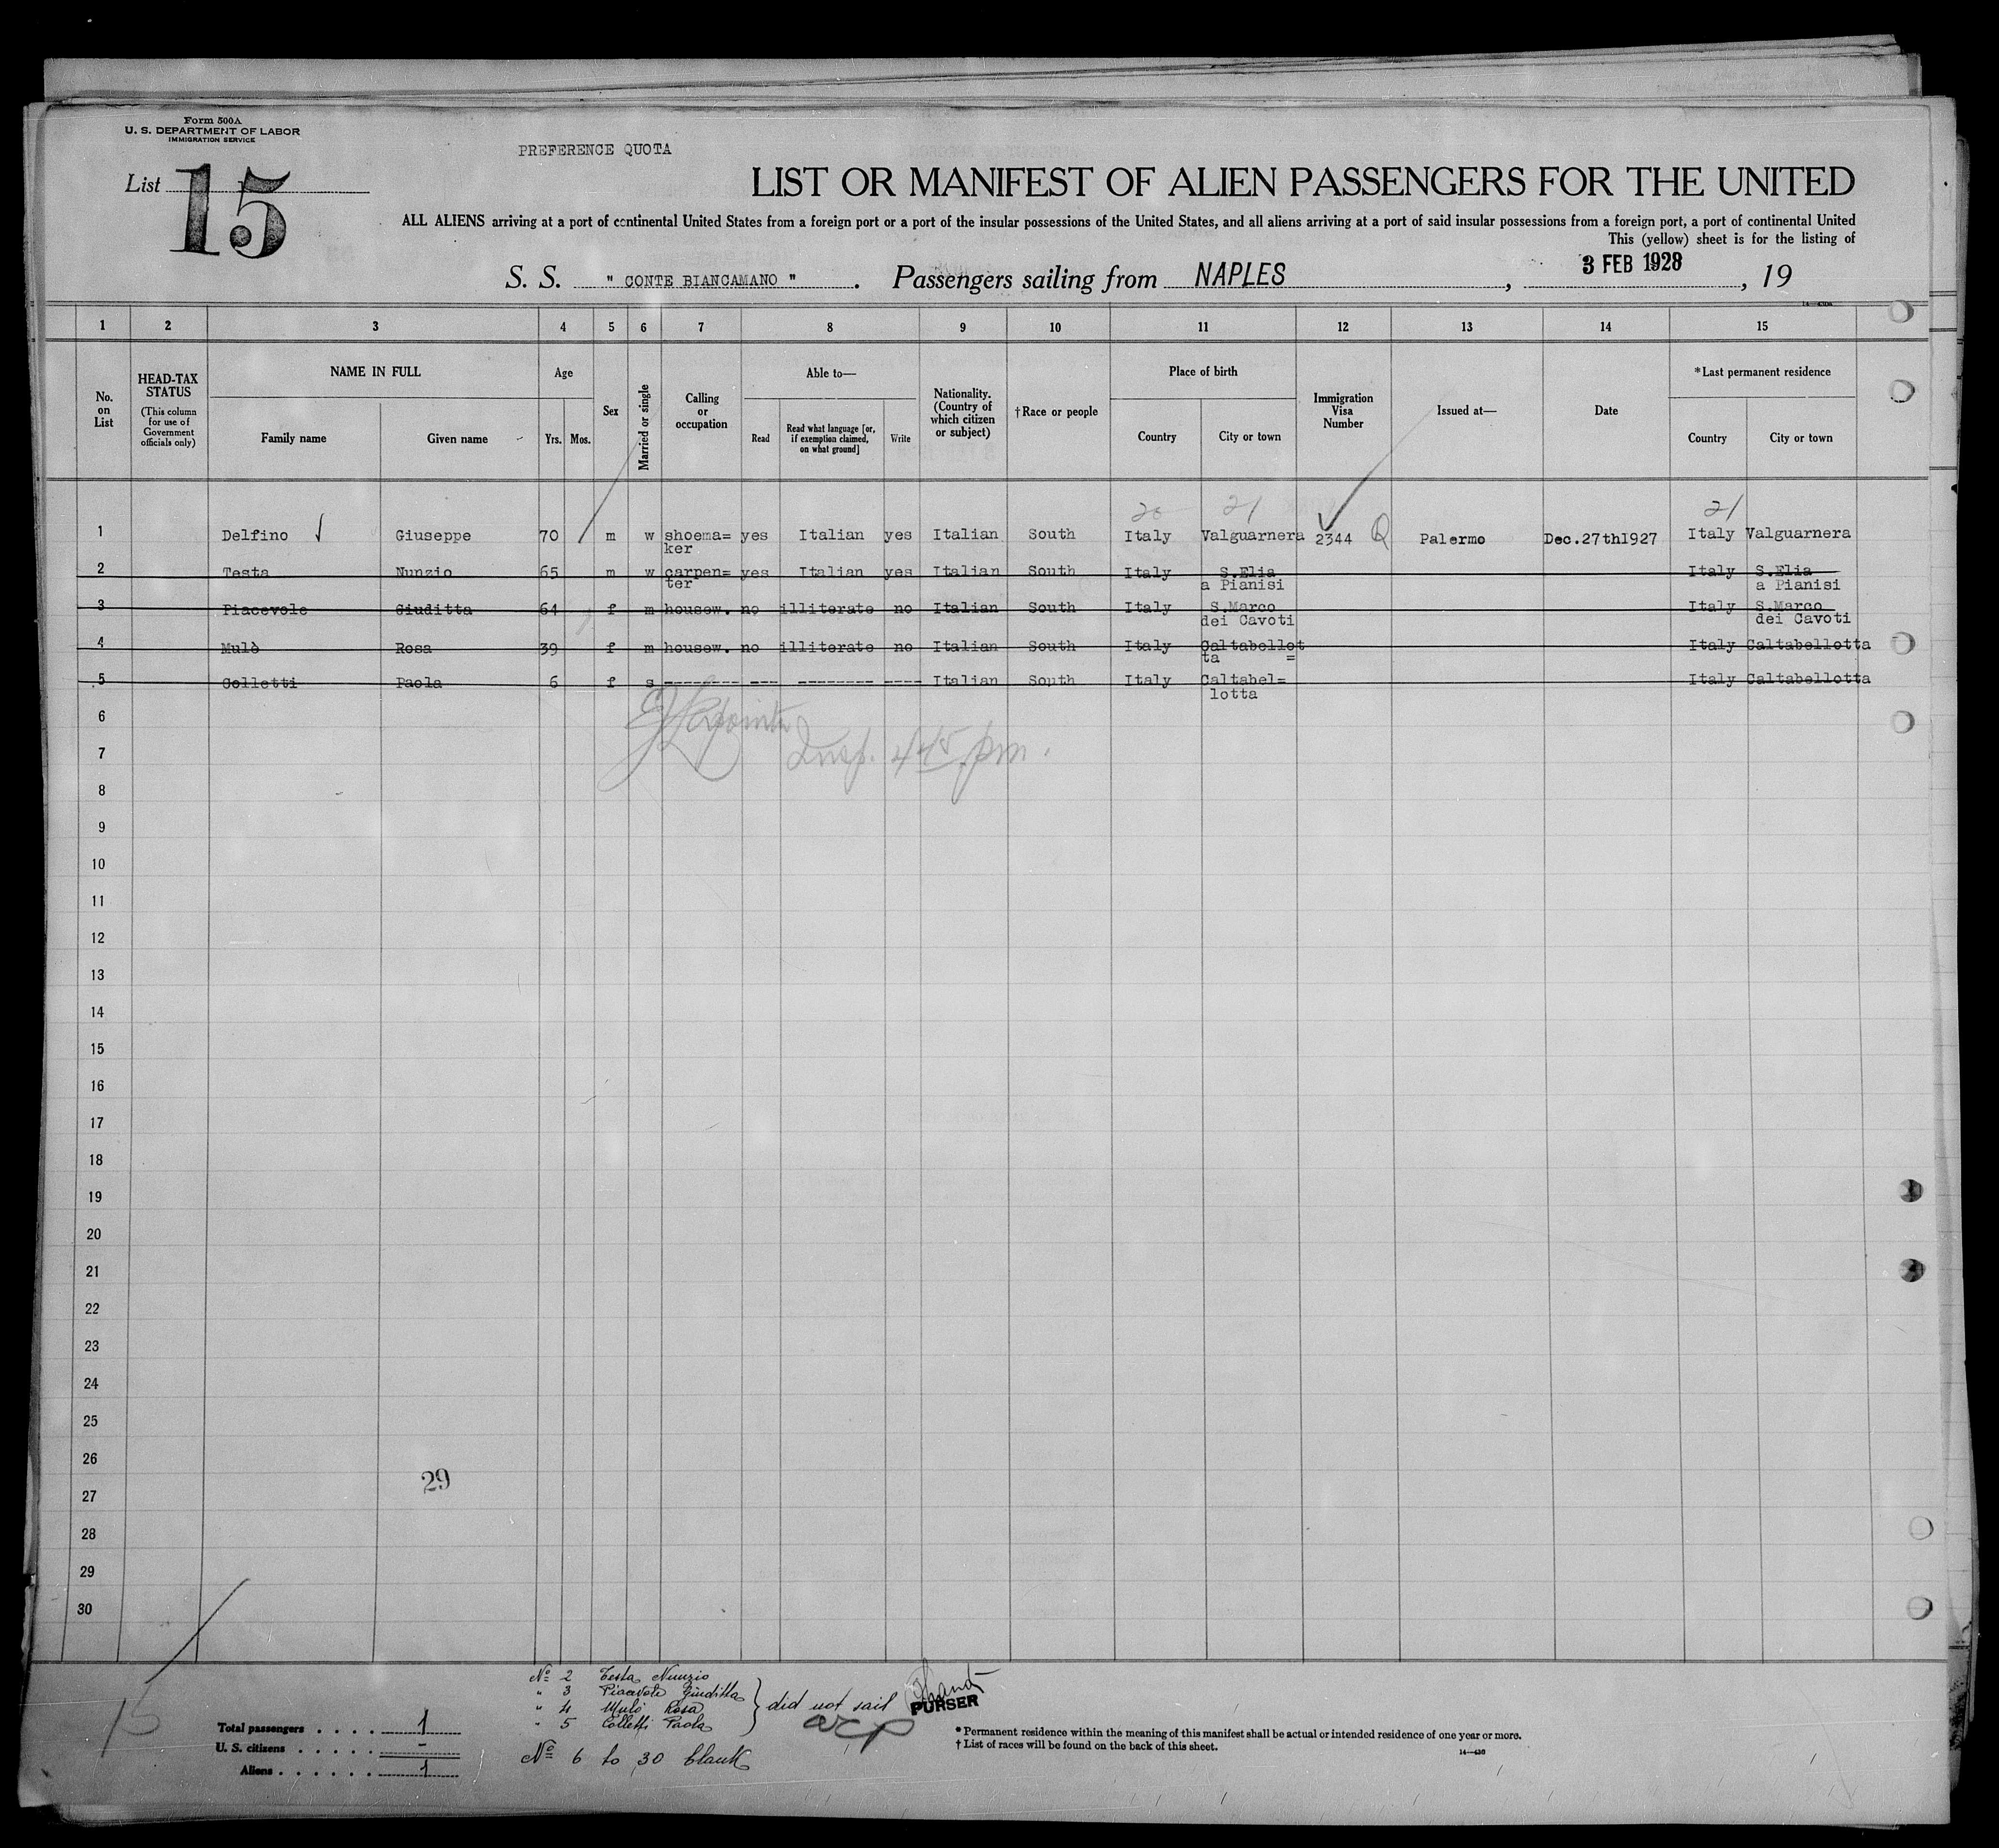 Form 500A
U. S. DEPARTMENT OF LABOR
IMMIGRATION SERVICE
PREFERENCE QUOTA
List 15
LIST OR MANIFEST OF ALIEN PASSENGERS FOR THE UNITED
ALL ALIENS arriving at a port of continental United States from a foreign port or a port of the insular possessions of the United States, and all aliens arriving at a port of said insular possessions from a foreign port, a port of continental United
This (yellow) sheet is for the listing of
S. S. " CONTE BIANCAMANO " . Passengers sailing from NAPLES , 3 FEB 1928 , 19
1 2 3 4 5 6 7 8 9 10 11 12 13 14 15
No. on List
HEAD-TAX STATUS
(This column for use of Government officials only)
NAME IN FULL
Family name Given name
Age
Yrs. Mos.
Sex
Married or single
Calling or occupation
Able to—
Read
Read what language [or, if exemption claimed, on what ground]
Write
Nationality. (Country of which citizen or subject)
†Race or people
Place of birth
Country City or town
Immigration Visa Number
Issued at—
Date
*Last permanent residence
Country City or town
21 21
1 Delfino Giuseppe 70 m w shoema= yes Italian yes Italian South Italy Valguarnera 2344 Q Palermo Dec.27th1927 Italy Valguarnera
ker
2 Testa Nunzio 65 m w carpen= yes Italian yes Italian South Italy S.Elia Italy S.Elia
ter a Pianisi a Pianisi
3 Piacevole Giuditta 64 f m housew. no illiterate no Italian South Italy S.Marco Italy S.Marco
dei Cavoti dei Cavoti
4 Mulè Rosa 39 f m housew. no illiterate no Italian South Italy Caltabellot Italy Caltabellotta
ta =
5 Colletti Paola 6 f s ------- --- -------- ---- Italian South Italy Caltabel= Italy Caltabellotta
lotta
6
Insp. 445 pm.
7
8
9
10
11
12
13
14
15
16
17
18
19
20
21
22
23
24
25
26
29
27
28
29
30
15
Nº 2 Testa Nunzio
" 3 Piacevole Giuditta
" 4 Mulè Rosa
" 5 Colletti Paola
did not sail
PURSER
Nº 6 to 30 blank
Total passengers . . . . 1
U. S. citizens . . . . . -
Aliens . . . . . . 1
* Permanent residence within the meaning of this manifest shall be actual or intended residence of one year or more.
† List of races will be found on the back of this sheet.
14—430